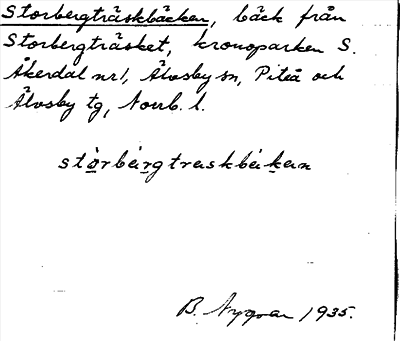 Storbergträskbäcken, bäck från
Storbergträsket, kronoparken S.
Åkerdal nr 1, Älvsby sn, Piteå och
Älvsby tg, Norrb. l.
stòrbärgtraskbäkan
B. Nygren 1935.